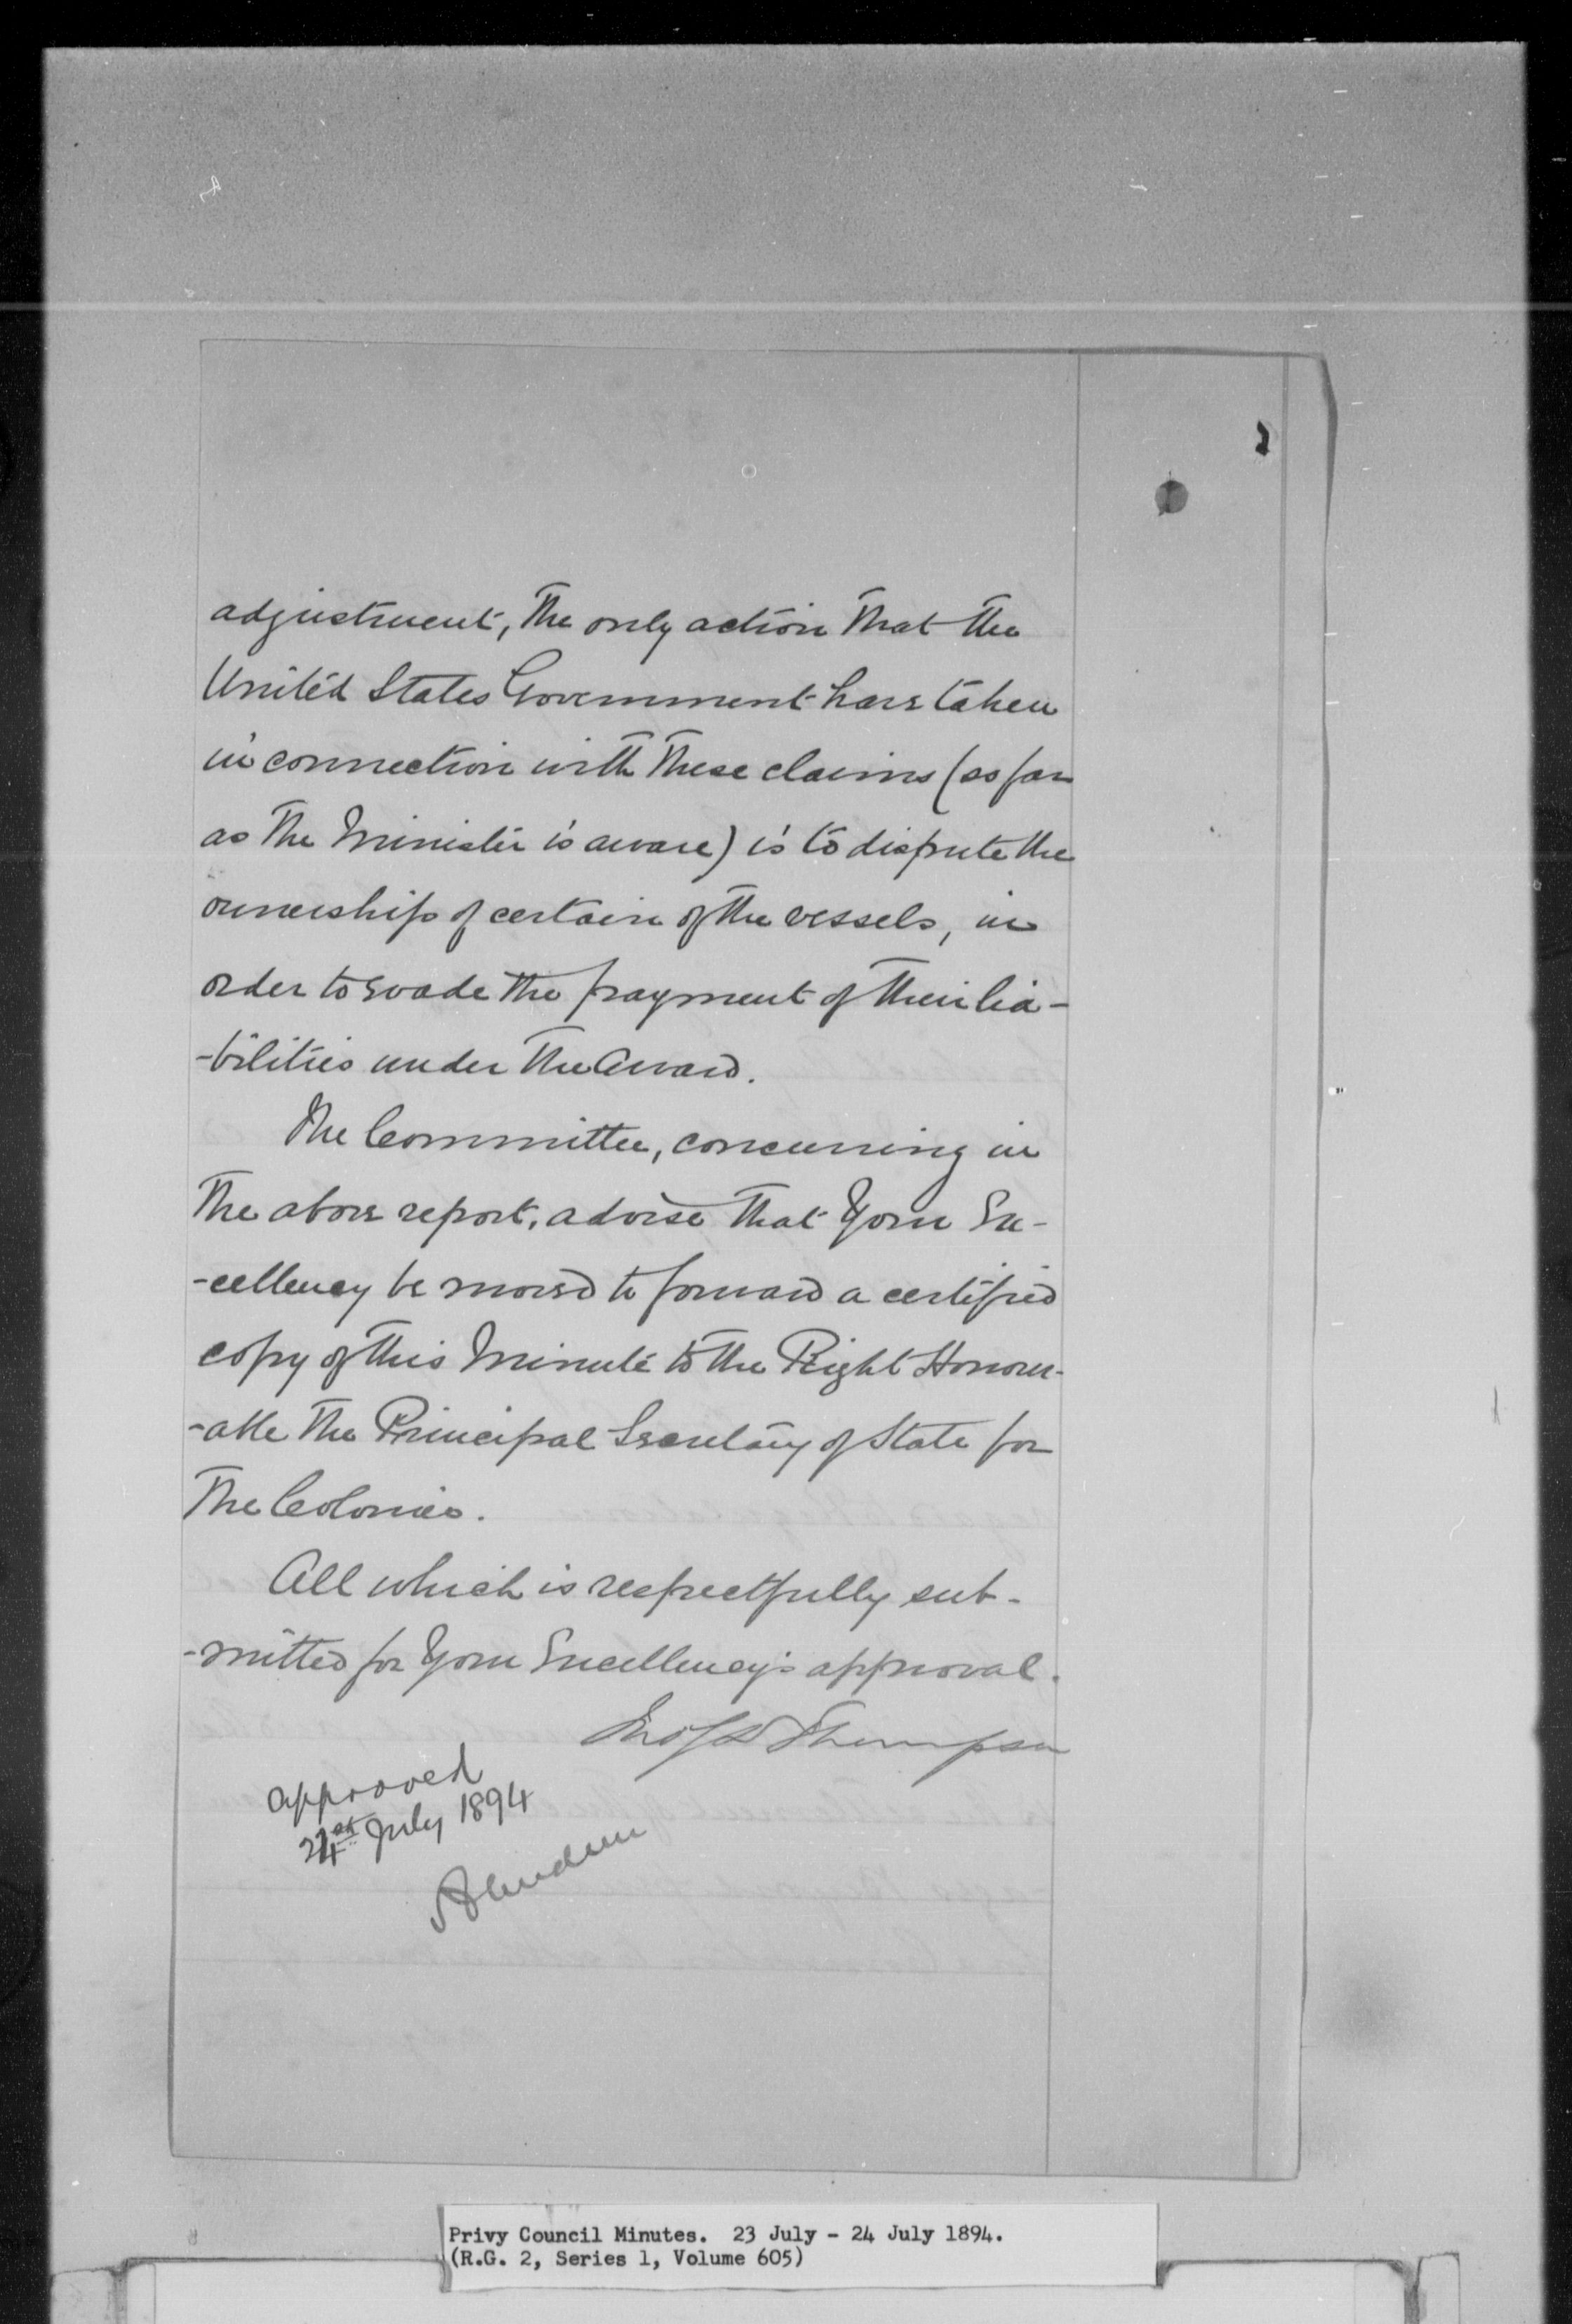 adjustment, the only action that the
United States Government have taken
in connection with these claims (so far
as the Minister is aware) is to dispute the
ownership of certain of the vessels, in
order to evade the payment of their lia-
-bilities under the Award.
The Committee, concurring in
the above report, advise that Your Ex-
-cellency be moved to forward a certified
copy of this Minute to the Right Honour-
-able the Principal Secretary of State for
the Colonies.
All which is respectfully sub-
-mitted for Your Excellency's approval.
Jno S D Thompson
approved
24 July 1894
Aberdeen
Privy Council Minutes. 23 July - 24 July 1894.
(R.G. 2, Series 1, Volume 605)